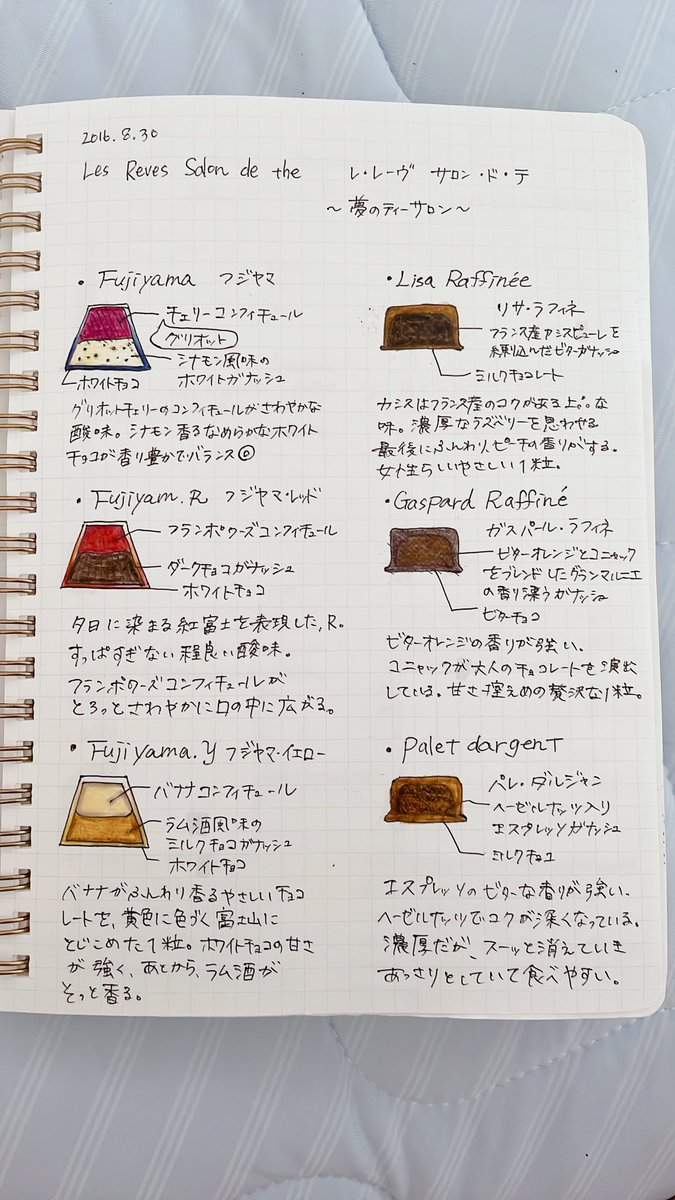 2016.8.30
Les Reves Salon de the レ・レーヴ サロン・ド・テ
～夢のティーサロン～
・Fujiyama フジヤマ
チェリーコンフィチュール
グリオット
シナモン風味の
ホワイトガナッシュ
ホワイトチョコ
グリオットチェリーのコンフィチュールがさわやかな
酸味。シナモン香るなめらかなホワイト
チョコが香り豊かでバランス◎
・Fujiyam.R フジヤマ・レッド
フランボワーズコンフィチュール
ダークチョコガナッシュ
ホワイトチョコ
夕日に染まる紅富士を表現した、R。
すっぱすぎない程良い酸味。
フランボワーズコンフィチュールが
とろっとさわやかに口の中に広がる。
・Fujiyama.y フジヤマ・イエロー
バナナコンフィチュール
ラム酒風味の
ミルクチョコガナッシュ
ホワイトチョコ
バナナがふんわり香るやさしいチョコ
レートを、黄色に色づく富士山に
とじこめた1粒。ホワイトチョコの甘さ
が強く、あとから、ラム酒が
そっと香る。
・Lisa Raffinée
リサ・ラフィネ
フランス産カシスピューレを
練り込んだビターガナッシュ
ミルクチョコレート
カシスはフランス産のコクがある上品な
味。濃厚なラズベリーを思わせる
最後にふんわり、ピーチの香りがする。
女性らしいやさしい1粒。
・Gaspard Raffiné
ガスパール・ラフィネ
ビターオレンジとコニャック
をブレンドしたグランマルニエ
の香り漂うガナッシュ
ビターチョコ
ビターオレンジの香りが強い。
コニャックが大人のチョコレートを演出
している。甘さ控えめの贅沢な1粒。
・Palet dargent
パレ・ダルジャン
ヘーゼルナッツ入り
エスプレッソガナッシュ
ミルクチョコ
エスプレッソのビターな香りが強い。
ヘーゼルナッツでコクが深くなっている。
濃厚だが、スーッと消えていき
あっさりとしていて食べやすい。